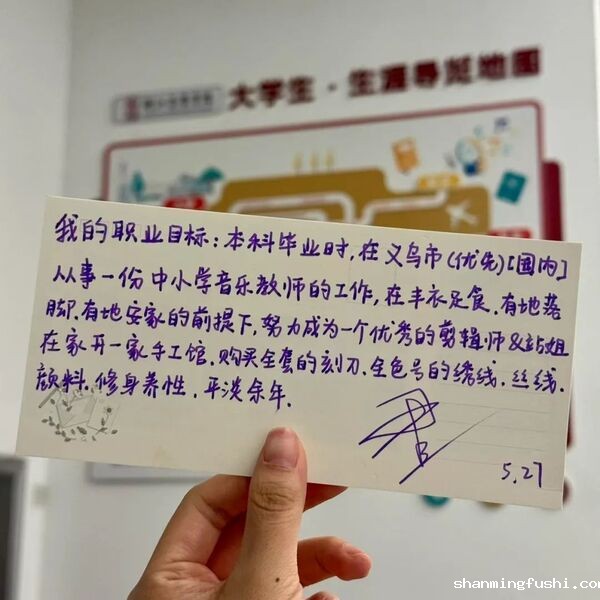 大学生·生涯导航地图
我的职业目标：本科毕业时，在义乌市(优先)[国内]
从事一份中小学音乐教师的工作，在丰衣足食.有地落
脚.有地安家的前提下，努力成为一个优秀的剪辑师&站姐
在家开一家手工馆.购买全套的刻刀.全色号的绣线.丝线.
颜料.修身养性.平淡余年.
5.27
shanmingfushi.com